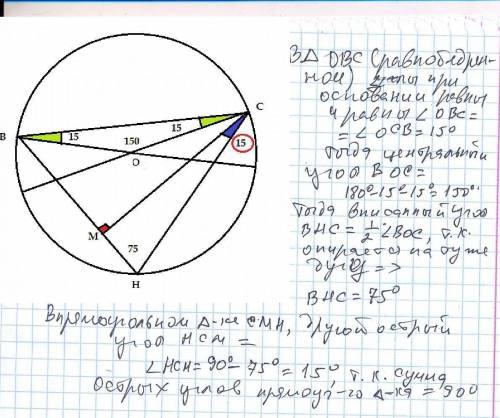 В Δ ОВС (равнобедрен-
ном) углы при
основании равны
и равны ∠OBC =
= ∠OCB = 15°
Тогда центральный
угол BOC =
180°-15°-15° = 150°
Тогда вписанный угол
BHC = 1/2 ∠BOC, т.к.
опирается на ту же
дугу =>
BHC = 75°
B
15
15
C
150
15
O
M
75
H
В прямоугольном Δ-ке CMH, другой острый
угол HCM =
∠HCM = 90° - 75° = 15°, т.к. сумма
острых углов прямоуг-го Δ-ка = 90°